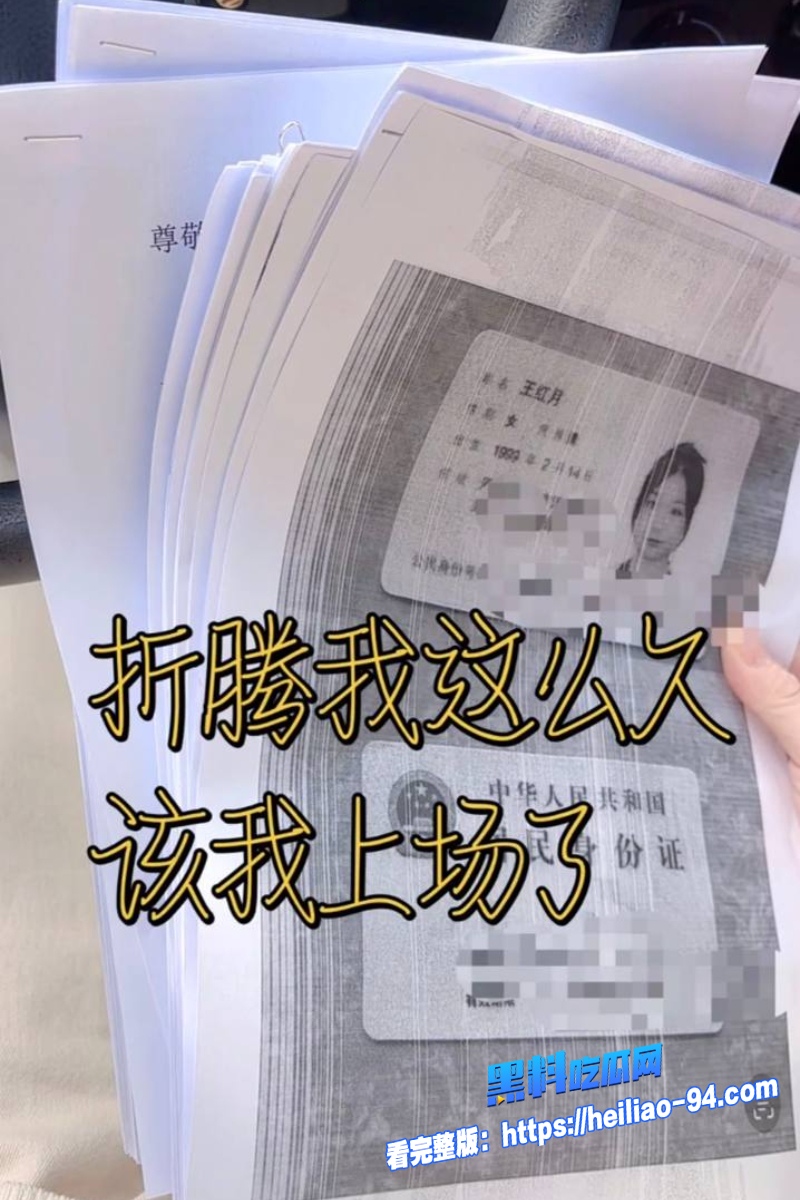 尊敬
姓名 王红月
性别 女 民族 汉
出生 1999 年 2 月 14 日
公民身份号
折腾我这么久
该我上场了
中华人民共和国
居民身份证
黑料吃瓜网
看完整版：https://heiliao-94.com